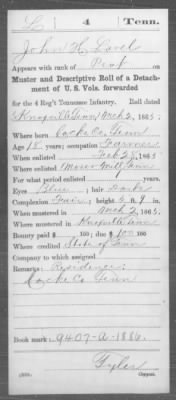 L | 4 | Tenn.
John H. Lovel
Appears with rank of Priv on
Muster and Descriptive Roll of a Detach-
ment of U. S. Vols. forwarded
for the 4 Reg't Tennessee Infantry. Roll dated
Knoxville Tenn Mch 2, 1865.
Where born Cocke Co. Tenn
Age 18 years; occupation Farmer
When enlisted Feb 28, 1865.
Where enlisted Tenn
For what period enlisted years.
Eyes Blue; hair Dark
Complexion Fair; height 5 ft. 9 in.
When mustered in Mch 2, 1865.
Where mustered in Knoxville Tenn
Bounty paid $ 100; due $ 100 100
Where credited State of Tenn
Company to which assigned
Remarks: Residence:
Cocke Co. Tenn
Book mark: 9407-A-1886
Tyler
Copyist.